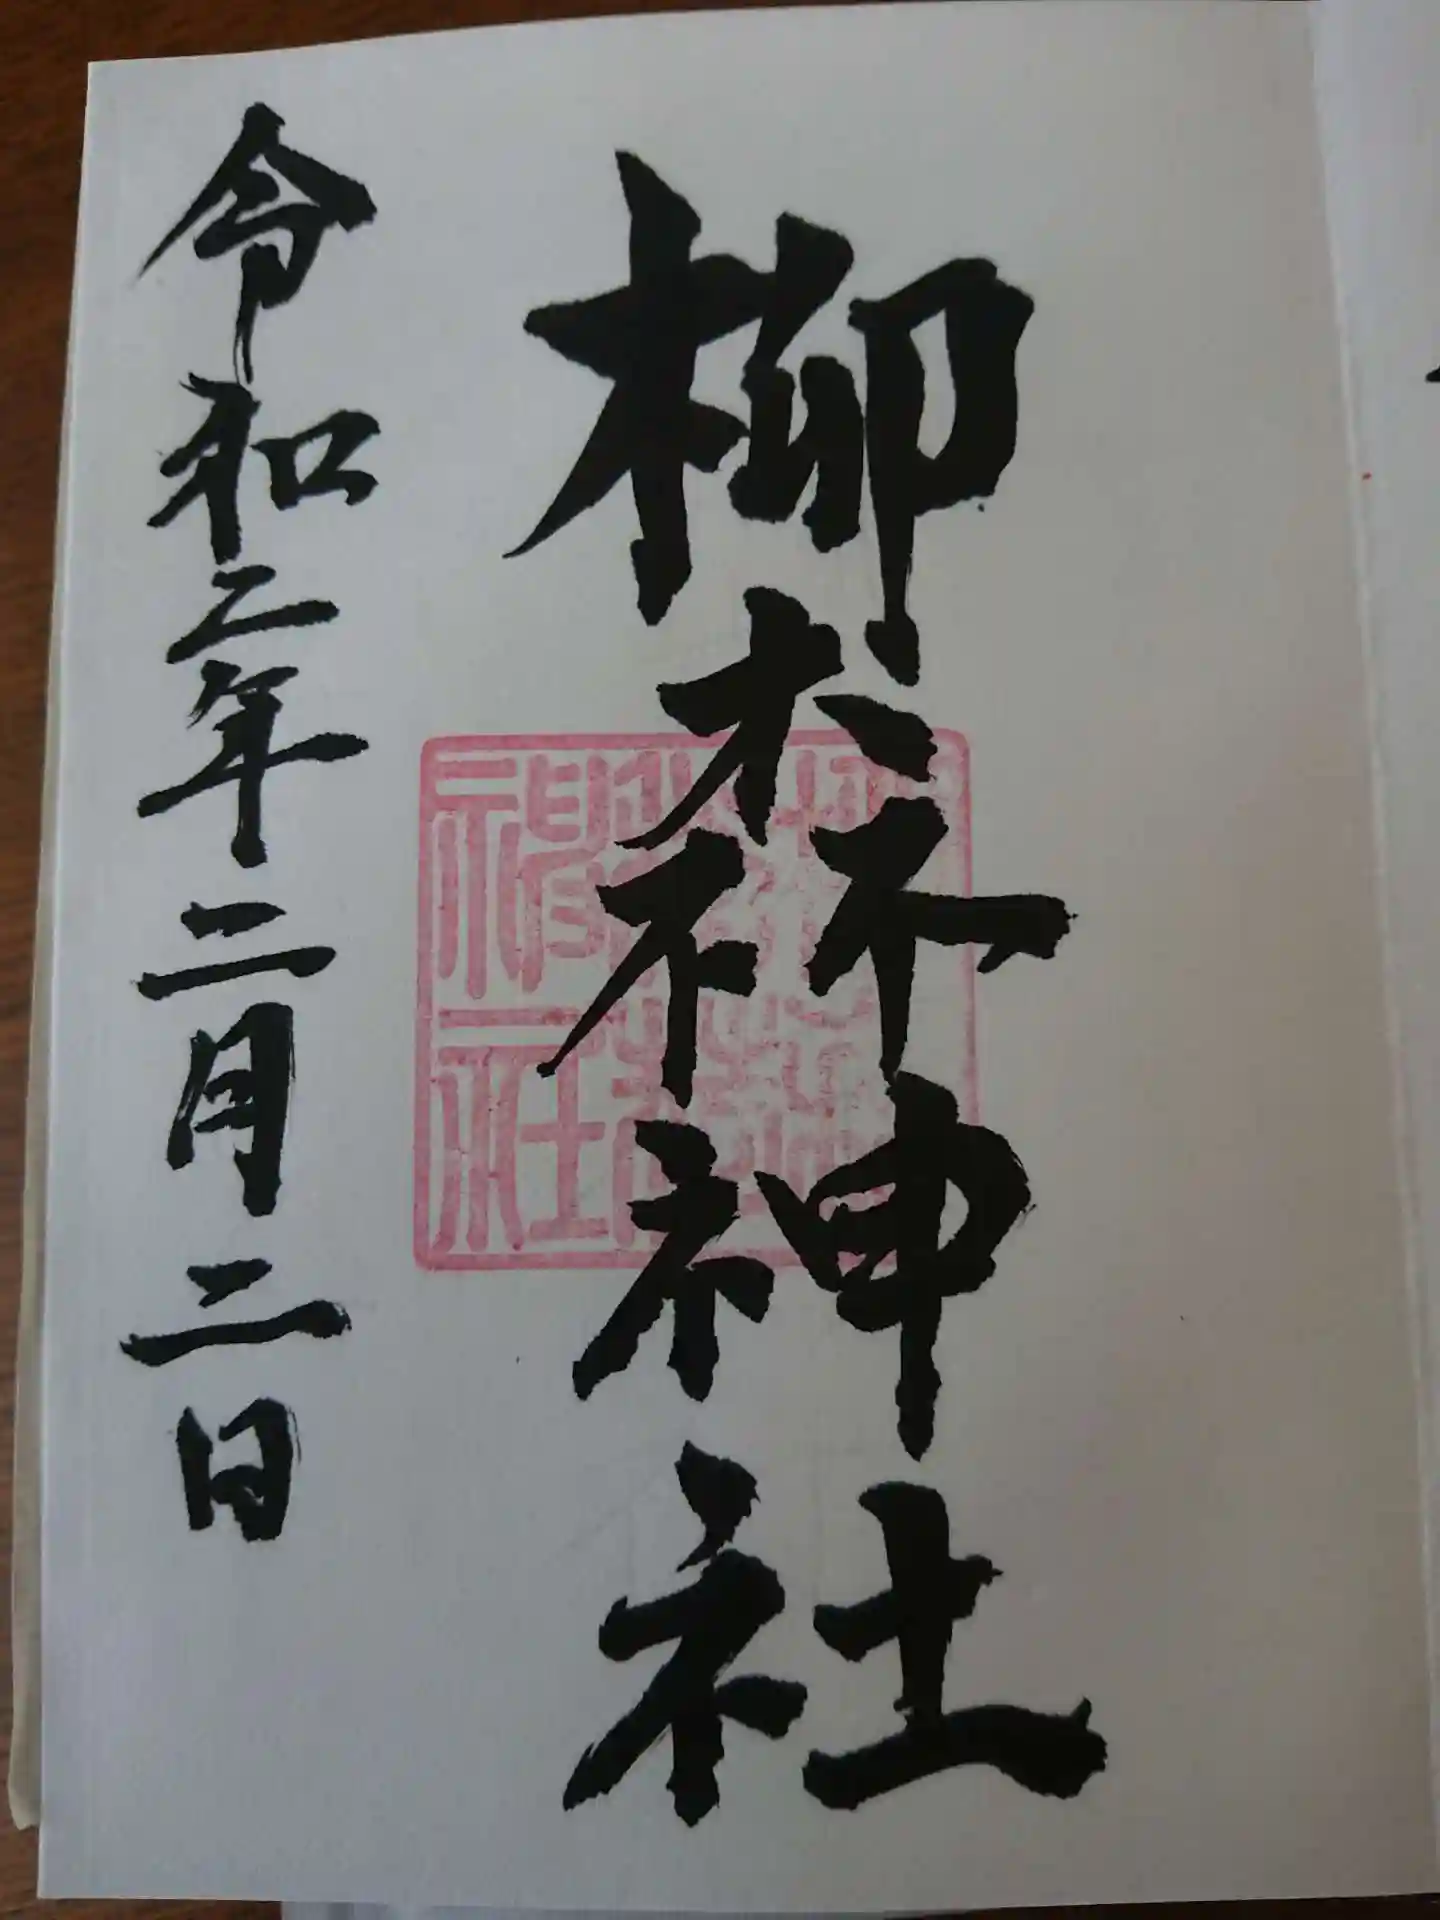 柳森神社
令和二年二月二日